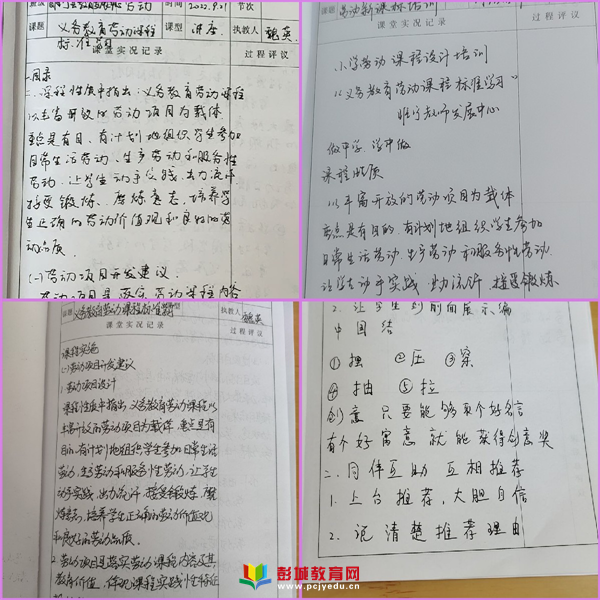 劳动 时间 2022.9.21 节次
课题 义务教育劳动课程标准 课型 讲座 执教人 魏英
课堂实况记录 过程评议
一.目录
二.课程性质中指出:义务教育劳动课程
以丰富开放的劳动项目为载体
重点是有目、有计划地组织学生参加
日常生活劳动、生产劳动和服务性
劳动、让学生动手实践、出力流汗
接受锻炼、磨炼意志、培养学
生正确的劳动价值观和良好的劳
动品质。
(一)劳动项目开发建议
劳动项目是落实劳动课程内容
课题 劳动新课标培训
课堂实况记录 过程评议
小学劳动课程设计培训
以义务教育劳动课程标准学习
睢宁教师发展中心
做中学、学中做
课程性质
以丰富开放的劳动项目为载体
重点是有目的有计划地组织学生参加
日常生活劳动、生产劳动和服务性劳动.
让学生动手实践 出力流汗 接受锻炼
义务教育劳动课程标准 执教人 魏英
课堂实况记录 过程评议
课程实施
(一)劳动项目开发建议
1.劳动项目设计
课程性质中指出,义务教育劳动课程以
丰富开放的劳动项目为载体,重点是有
目的、有计划地组织学生参加日常生活
劳动、生产劳动和服务性劳动、让学生
动手实践、出力流汗、接受锻炼、磨
炼意志、培养学生正确的劳动价值观
和良好的劳动品质。
2 劳动项目是落实劳动课程内容及其
教育价值,体现课程实践性特征
2.让学生到前面展示编
中国结
①挑 ②压 ③穿
④抽 ⑤拉
创意 只要能够取个好名
有个好寓意 就能获得创意奖
二.同伴互助 互相推荐
1.上台推荐,大胆自信
2.说清楚推荐理由
彭城教育网
www.pcjyedu.cn